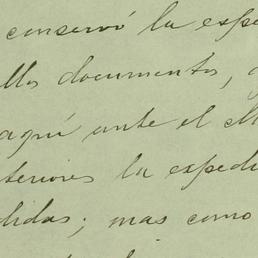 conservó la espe
llos documentos,
aquí ante el M
teriores la espedi
didas; mas como